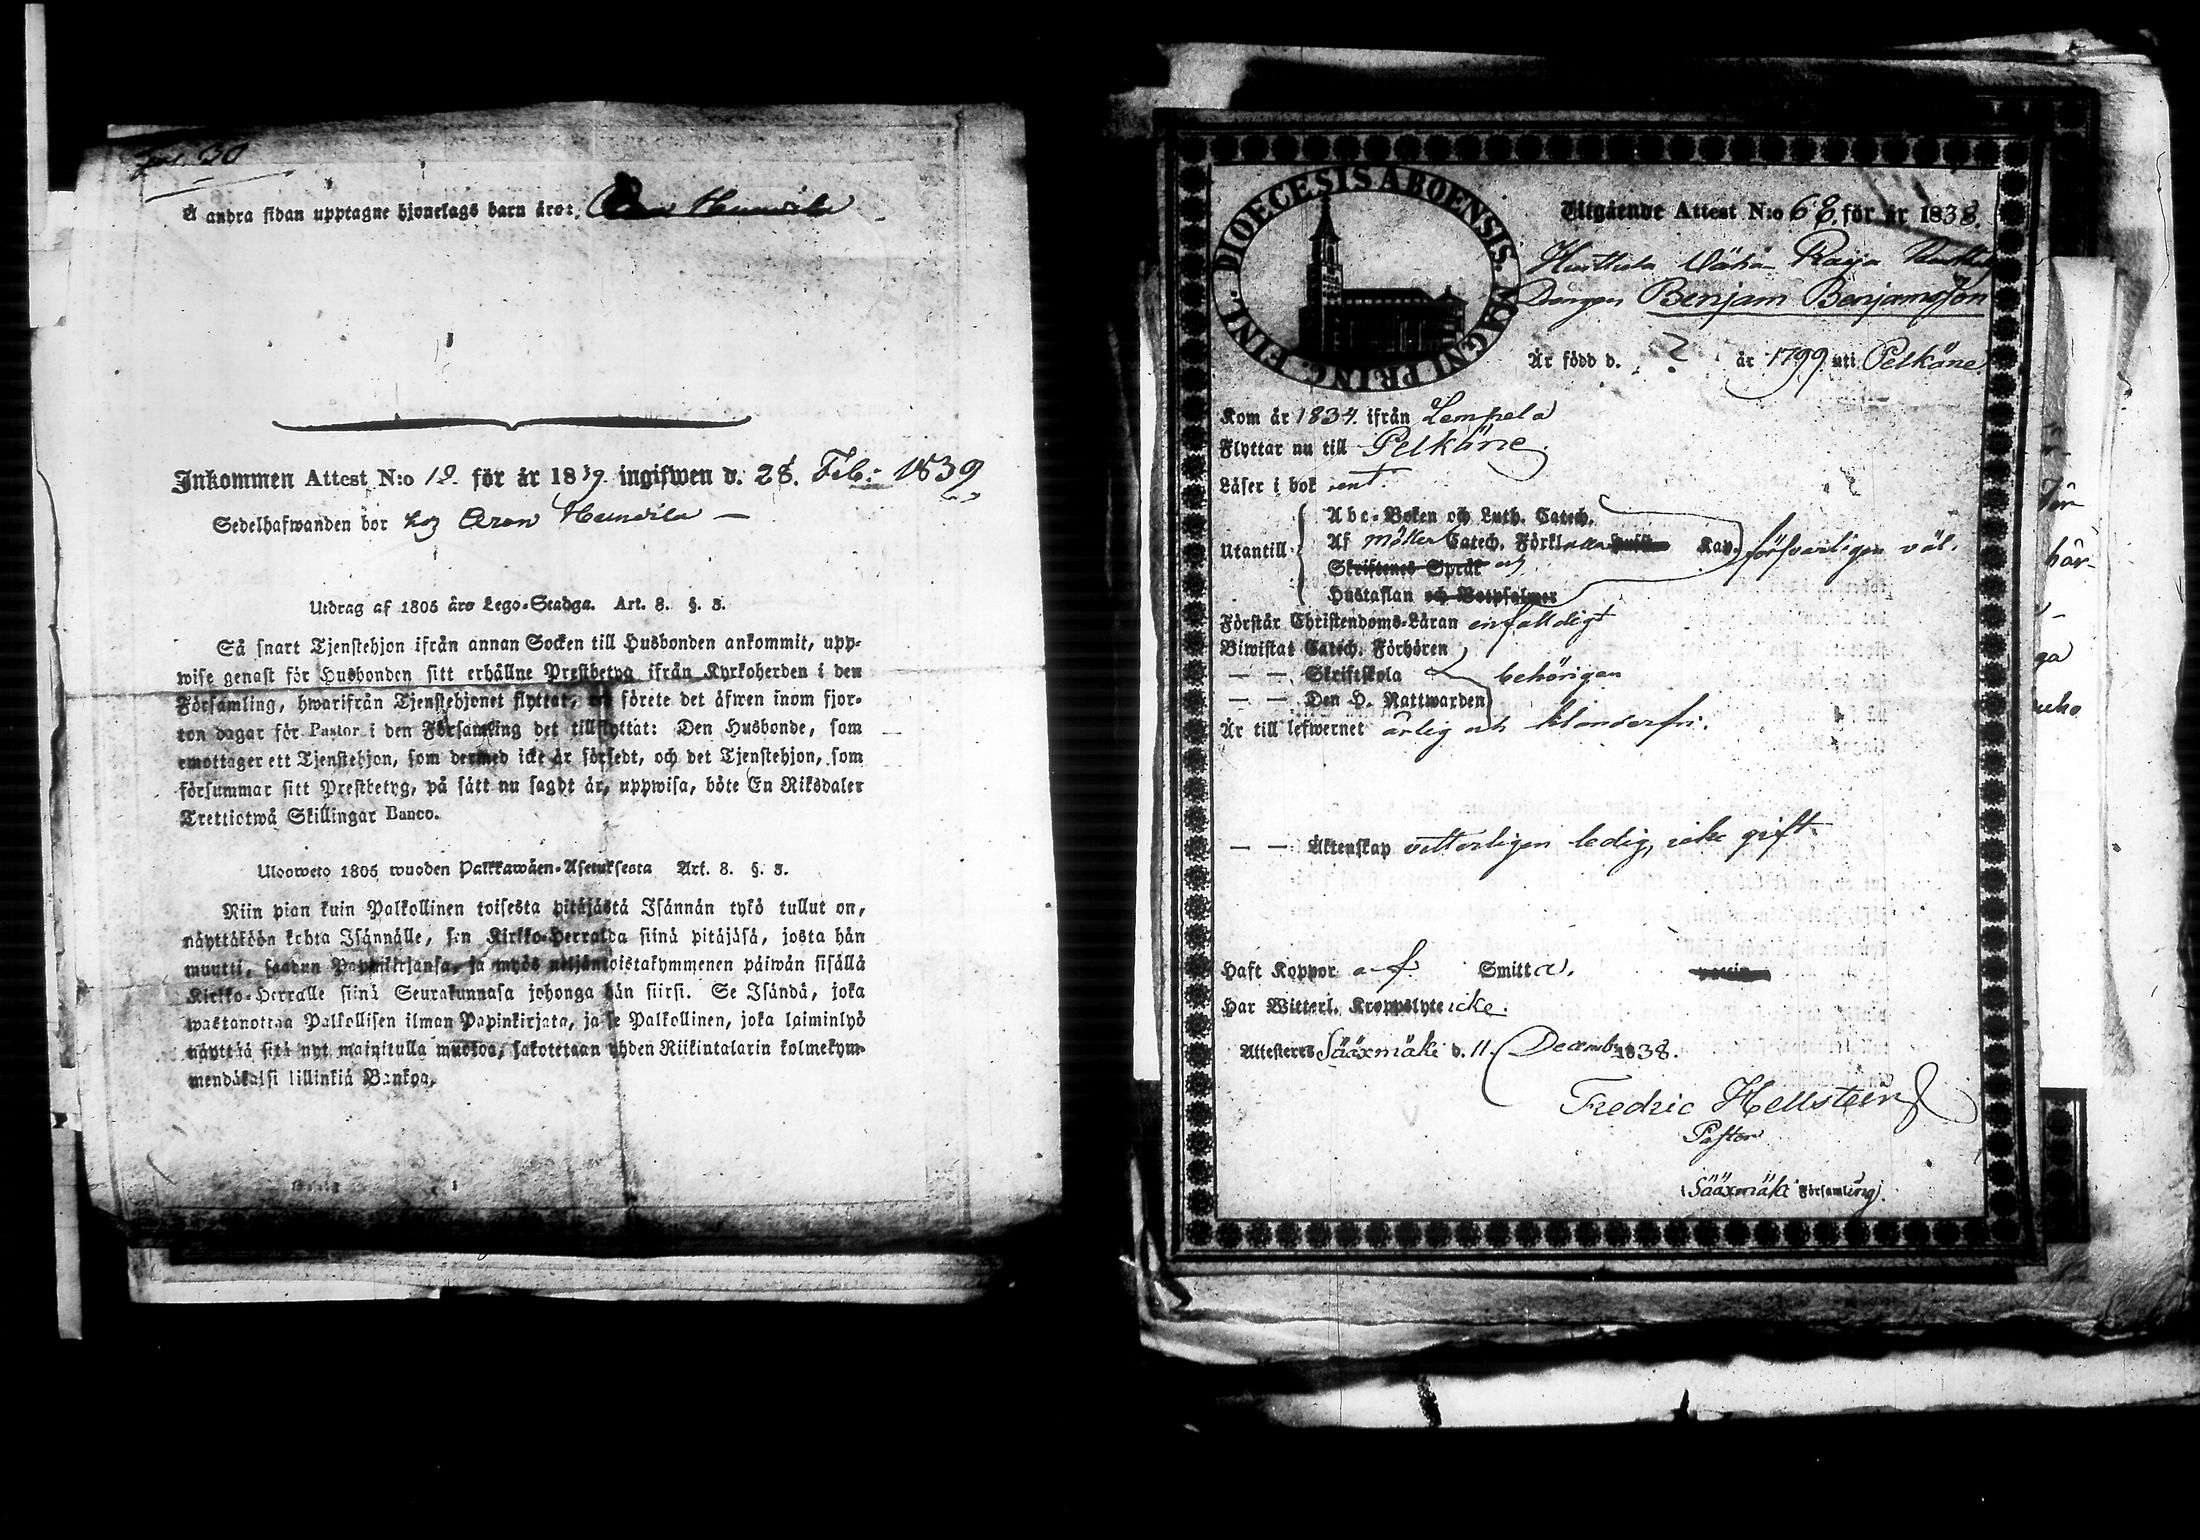 fol. 30
Å andra sidan upptagne hjonelags barn äro:
Inkommen Attest N:o 12. för år 1839. ingifwen d. 28. Feb: 1839
Sedelhafwanden bor hos Aron Heinrila
Utdrag af 1805 års Lego-Stadga. Art. 8. §. 3.
Så snart Tjenstehjon ifrån annan Socken till Husbonden ankommit, upp-
wise genast för Husbonden sitt erhållne Prestbetyg ifrån Kyrkoherden i den
Församling, hwarifrån Tjenstehjonet flyttat, och förete det äfwen inom fjor-
ton dagar för Pastor i den Församling det tillflyttat: Den Husbonde, som
emottager ett Tjenstehjon, som dermed icke är försedt, och det Tjenstehjon, som
försummar sitt Prestbetyg, på sätt nu sagdt är, uppwisa, böte En Riksdaler
Trettiotwå Skillingar Banco.
Uloosweto 1805 wuoden Palkkawäen-Asetuksesta Art. 8. §. 3.
Niin pian kuin Palkollinen toisesta pitäjästä Isännän tykö tullut on,
näyttäköön kohta Isännälle, sen Kirkko-Herralda siinä pitäjäsä, josta hän
muutti, saadun Papinkirjansa, ja myös neljäntoistakymmenen päiwän sisällä
Kirkko-Herralle siinä Seurakunnasa johonga hän siirsi. Se Isändä, joka
wastanottaa Palkollisen ilman Papinkirjata, ja se Palkollinen, joka laiminlyö
näyttää sitä nyt mainitulla muotoa, sakotetaan yhden Riikintalarin kolmekym-
mendäkaksi killinkiä Bankoa.
DIOECESIS ABOENSIS. MAGNI PRINC. FINL.
Utgående Attest N:o 68. för år 1838.
Huittula Wähä Raja
Drängen Benjam Benjamsson
Är född d. ? år 1799 uti Pelkäne.
Kom år 1834. ifrån Lempela
Flyttar nu till Pelkäne.
Läser i bok rent.
Utantill
Abc-Boken och Luth. Catech.
Af Möller Catech. Förkl. alla Kap. försvarligen väl.
Skriftenes Språk och
Hustaflan och Botpsalmer
Förstår Christendoms-Läran enfalldigt
Biwistat Catech. Förhören
— — Skriftskola behörigen
— — Den H. Nattwarden
Är till lefwernet ärlig och klanderfri.
— — Äktenskap vetterligen ledig, icke gift.
Haft Koppor af Smitta.
Har Witterl. Kroppslyte icke.
Attesteres Sääxmäki d. 11. December 1838.
Fredric Hellsteen
Pastor
i Sääxmäki Församling.